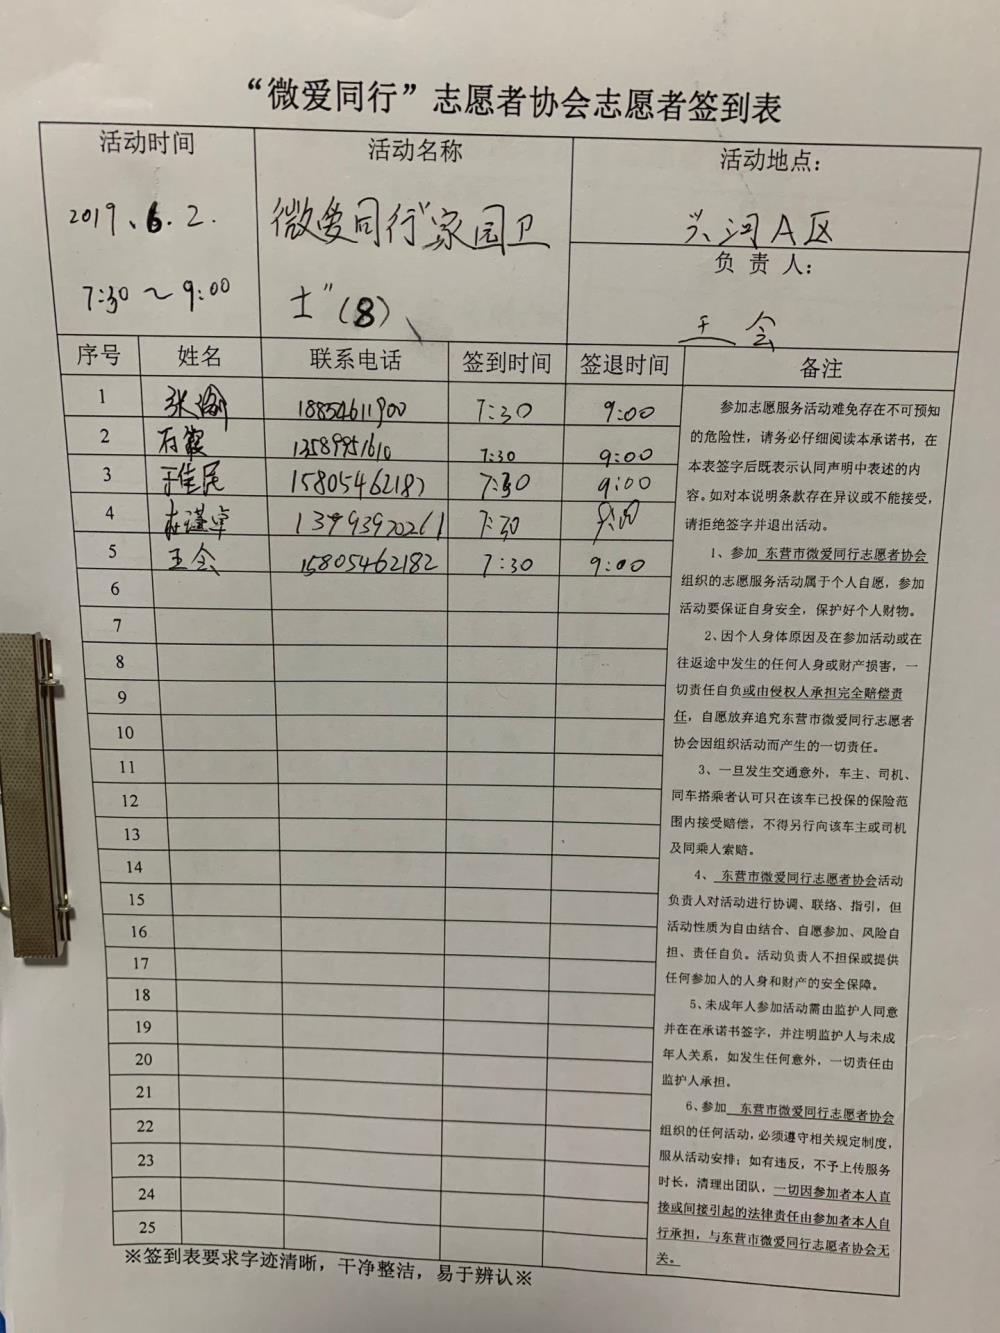 “微爱同行”志愿者协会志愿者签到表
活动时间
2019、6.2.
7:30～9:00
活动名称
微爱同行"家园卫
士"(8)、
活动地点：
兴河A区
负责人：
王会
序号 姓名 联系电话 签到时间 签退时间 备注
1 张 18854611900 7:30 9:00
2 石 13589951610 7:30 9:00
3 于佳民 15805462187 7:30 9:00
4 杜谨卓 13793970261 7:30 9:00
5 王会 15805462182 7:30 9:00
6
7
8
9
10
11
12
13
14
15
16
17
18
19
20
21
22
23
24
25
参加志愿服务活动难免存在不可预知
的危险性，请务必仔细阅读本承诺书，在
本表签字后既表示认同声明中表述的内
容。如对本说明条款存在异议或不能接受，
请拒绝签字并退出活动。
1、参加 东营市微爱同行志愿者协会
组织的志愿服务活动属于个人自愿，参加
活动要保证自身安全，保护好个人财物。
2、因个人身体原因及在参加活动或在
往返途中发生的任何人身或财产损害，一
切责任自负或由侵权人承担完全赔偿责
任，自愿放弃追究东营市微爱同行志愿者
协会因组织活动而产生的一切责任。
3、一旦发生交通意外，车主、司机、
同车搭乘者认可只在该车已投保的保险范
围内接受赔偿，不得另行向该车主或司机
及同乘人索赔。
4、 东营市微爱同行志愿者协会活动
负责人对活动进行协调、联络、指引，但
活动性质为自由结合、自愿参加、风险自
担、责任自负。活动负责人不担保或提供
任何参加人的人身和财产的安全保障。
5、未成年人参加活动需由监护人同意
并在在承诺书签字，并注明监护人与未成
年人关系，如发生任何意外，一切责任由
监护人承担。
6、参加 东营市微爱同行志愿者协会
组织的任何活动，必须遵守相关规定制度，
服从活动安排；如有违反，不予上传服务
时长，清理出团队，一切因参加者本人直
接或间接引起的法律责任由参加者本人自
行承担，与东营市微爱同行志愿者协会无
关。
※签到表要求字迹清晰，干净整洁，易于辨认※